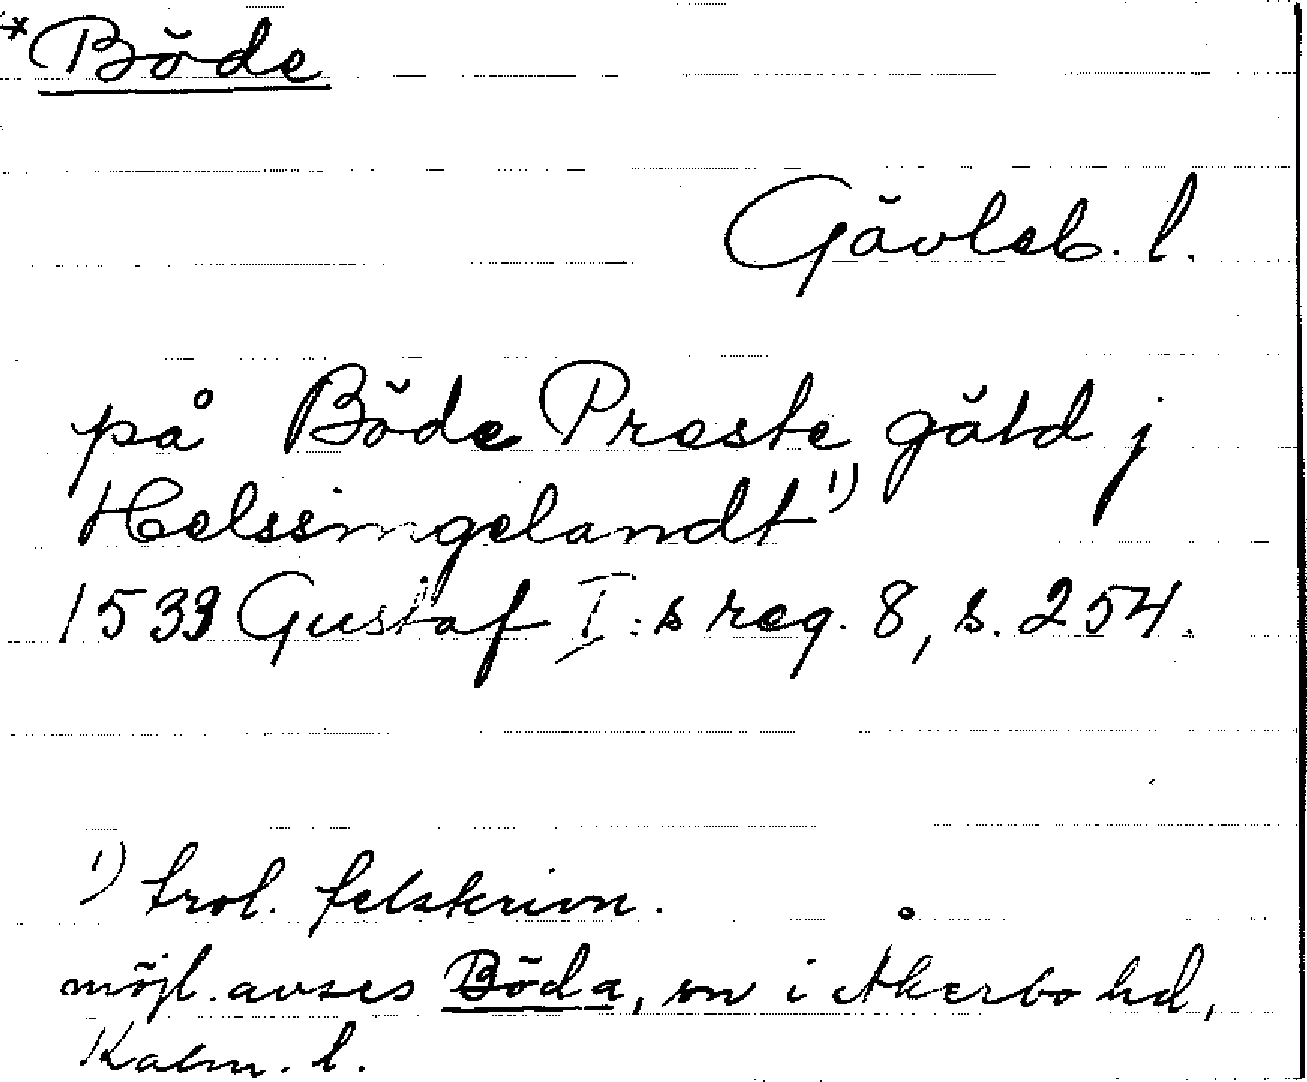 *Böde
Gävleb. l.
på Böde Preste gäld j
Helssingelandt 1)
1533 Gustaf I:s reg. 8, s. 254.
1) trol. felskrivn.
möjl. avses Böda, sn i Åkerbo hd,
Kalm. l.